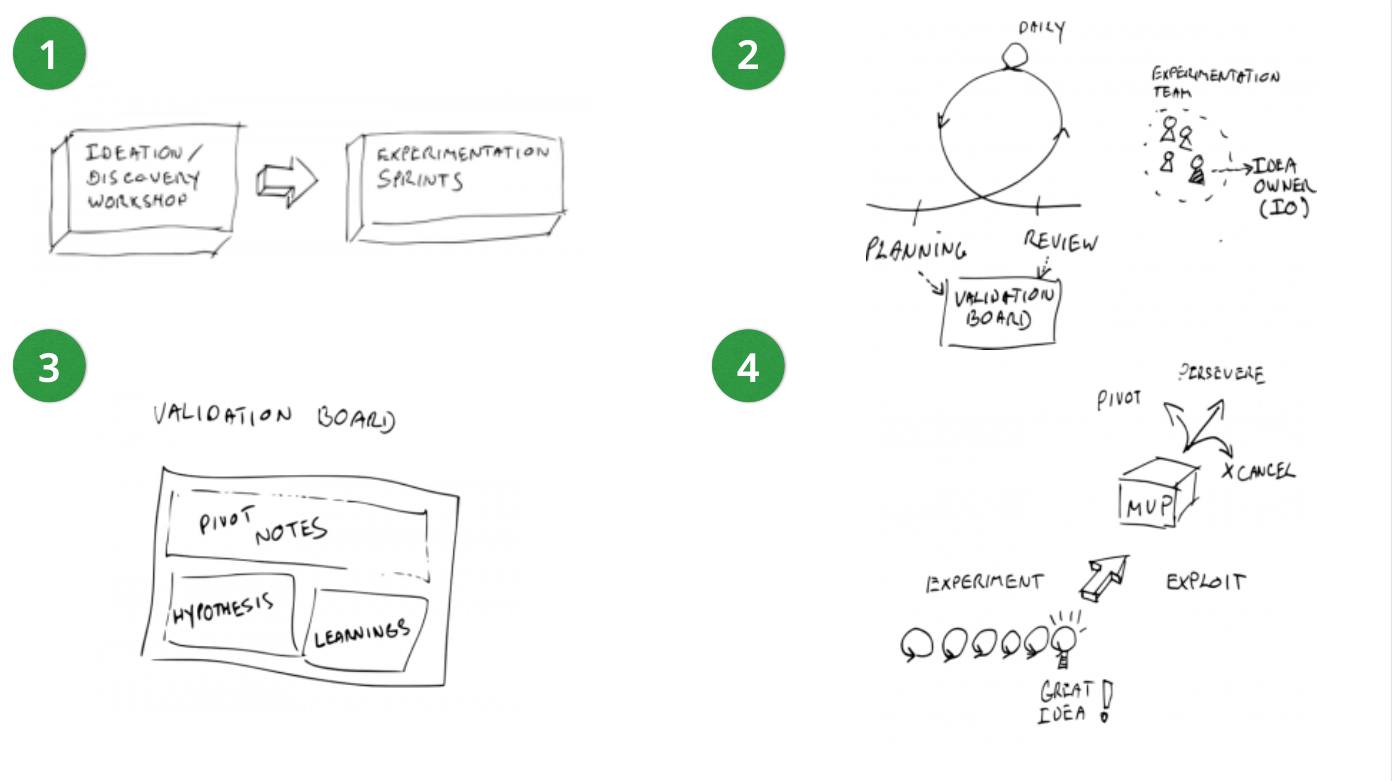 1
IDEATION/
DISCOVERY
WORKSHOP
EXPERIMENTATION
SPRINTS
2
DAILY
EXPERIMENTATION
TEAM
IDEA
OWNER
(IO)
PLANNING
REVIEW
VALIDATION
BOARD
3
VALIDATION BOARD
PIVOT
NOTES
HYPOTHESIS
LEARNINGS
4
PERSEVERE
PIVOT
X CANCEL
MVP
EXPERIMENT
EXPLOIT
GREAT
IDEA!